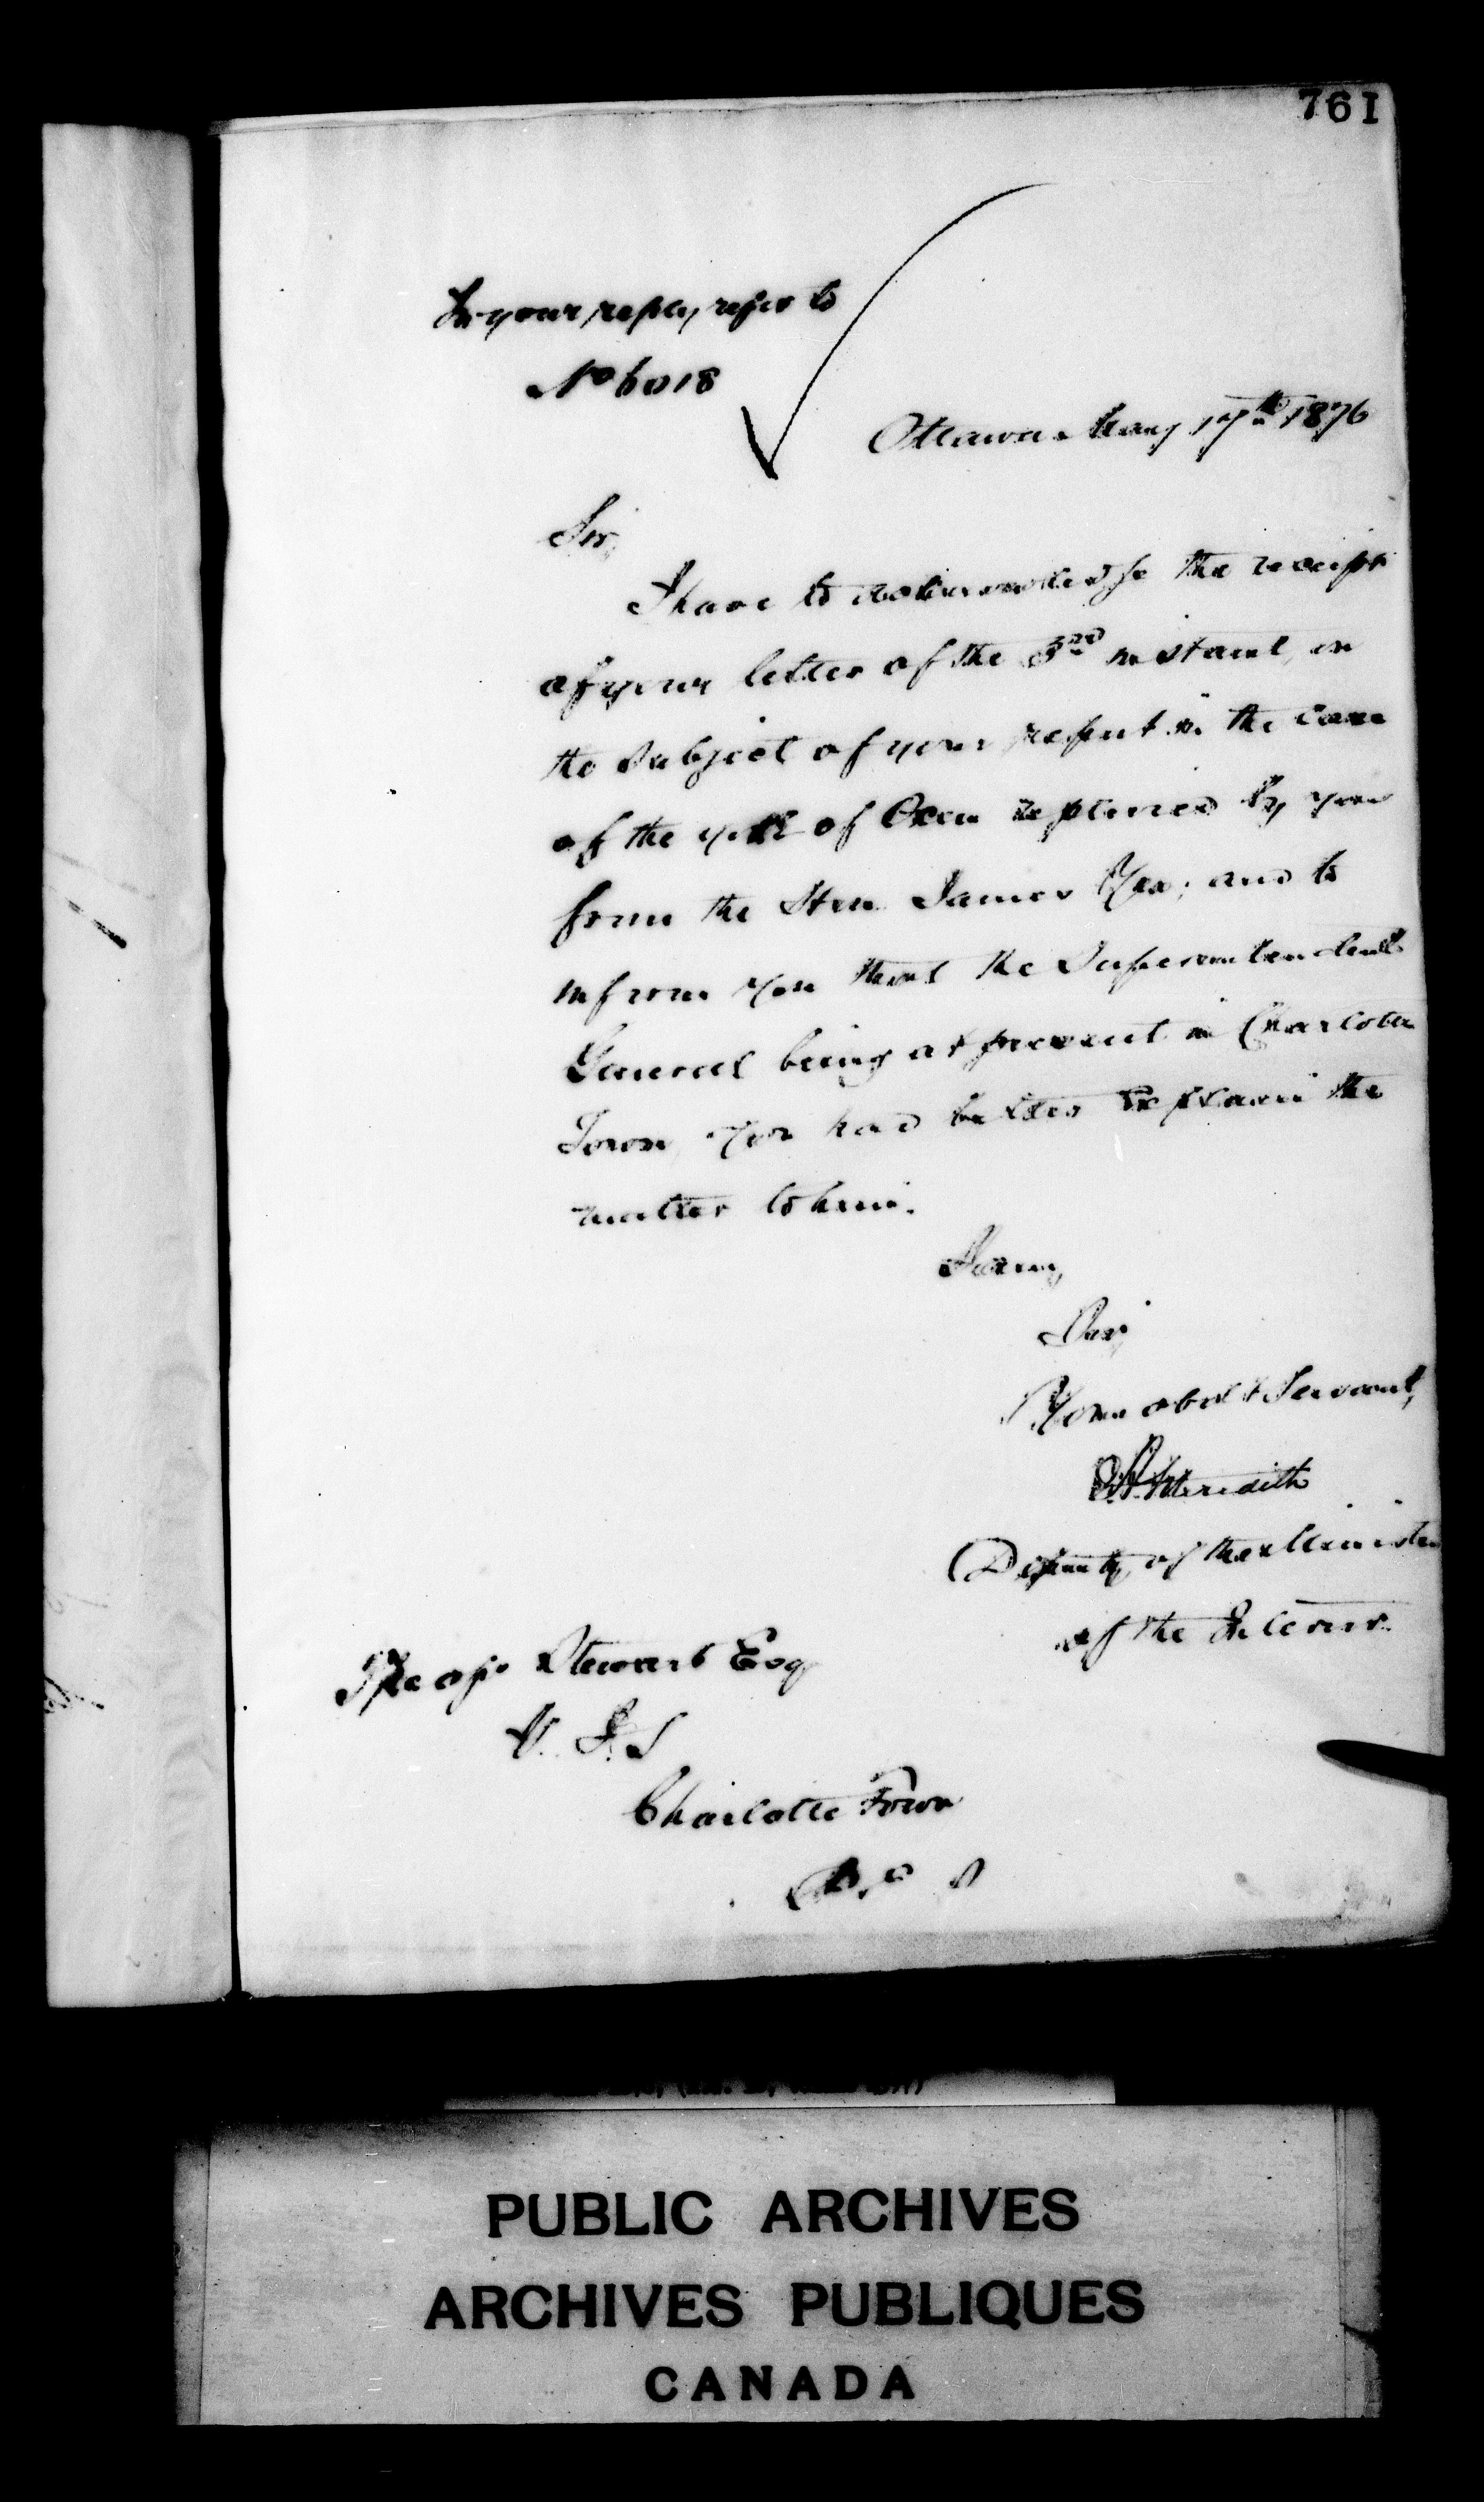 761
In your reply, refer to
No 6018
Ottawa May 17th 1876
Sir,
I have to acknowledge the receipt
of your letter of the 3rd instant, on
the subject of your report in the case
of the yoke of Oxen replevied by you
from the Hon. James Yeo; and to
inform you that the Superintendent
General being at present in Charlotte
Town, you had better explain the
matter to him.
I am,
Sir,
Your obed't Servant,
E. A. Meredith
Deputy of the Minister
of the Interior.
Theop. Stewart Esq
V. S. S
Charlotte Town
PUBLIC ARCHIVES
ARCHIVES PUBLIQUES
CANADA